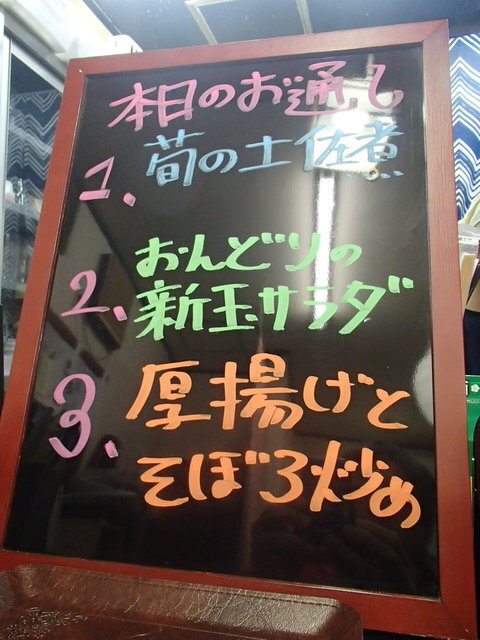 本日のお通し
1. 筍の土佐煮
2. おんどりの
新玉サラダ
3. 厚揚げと
そぼろ炒め